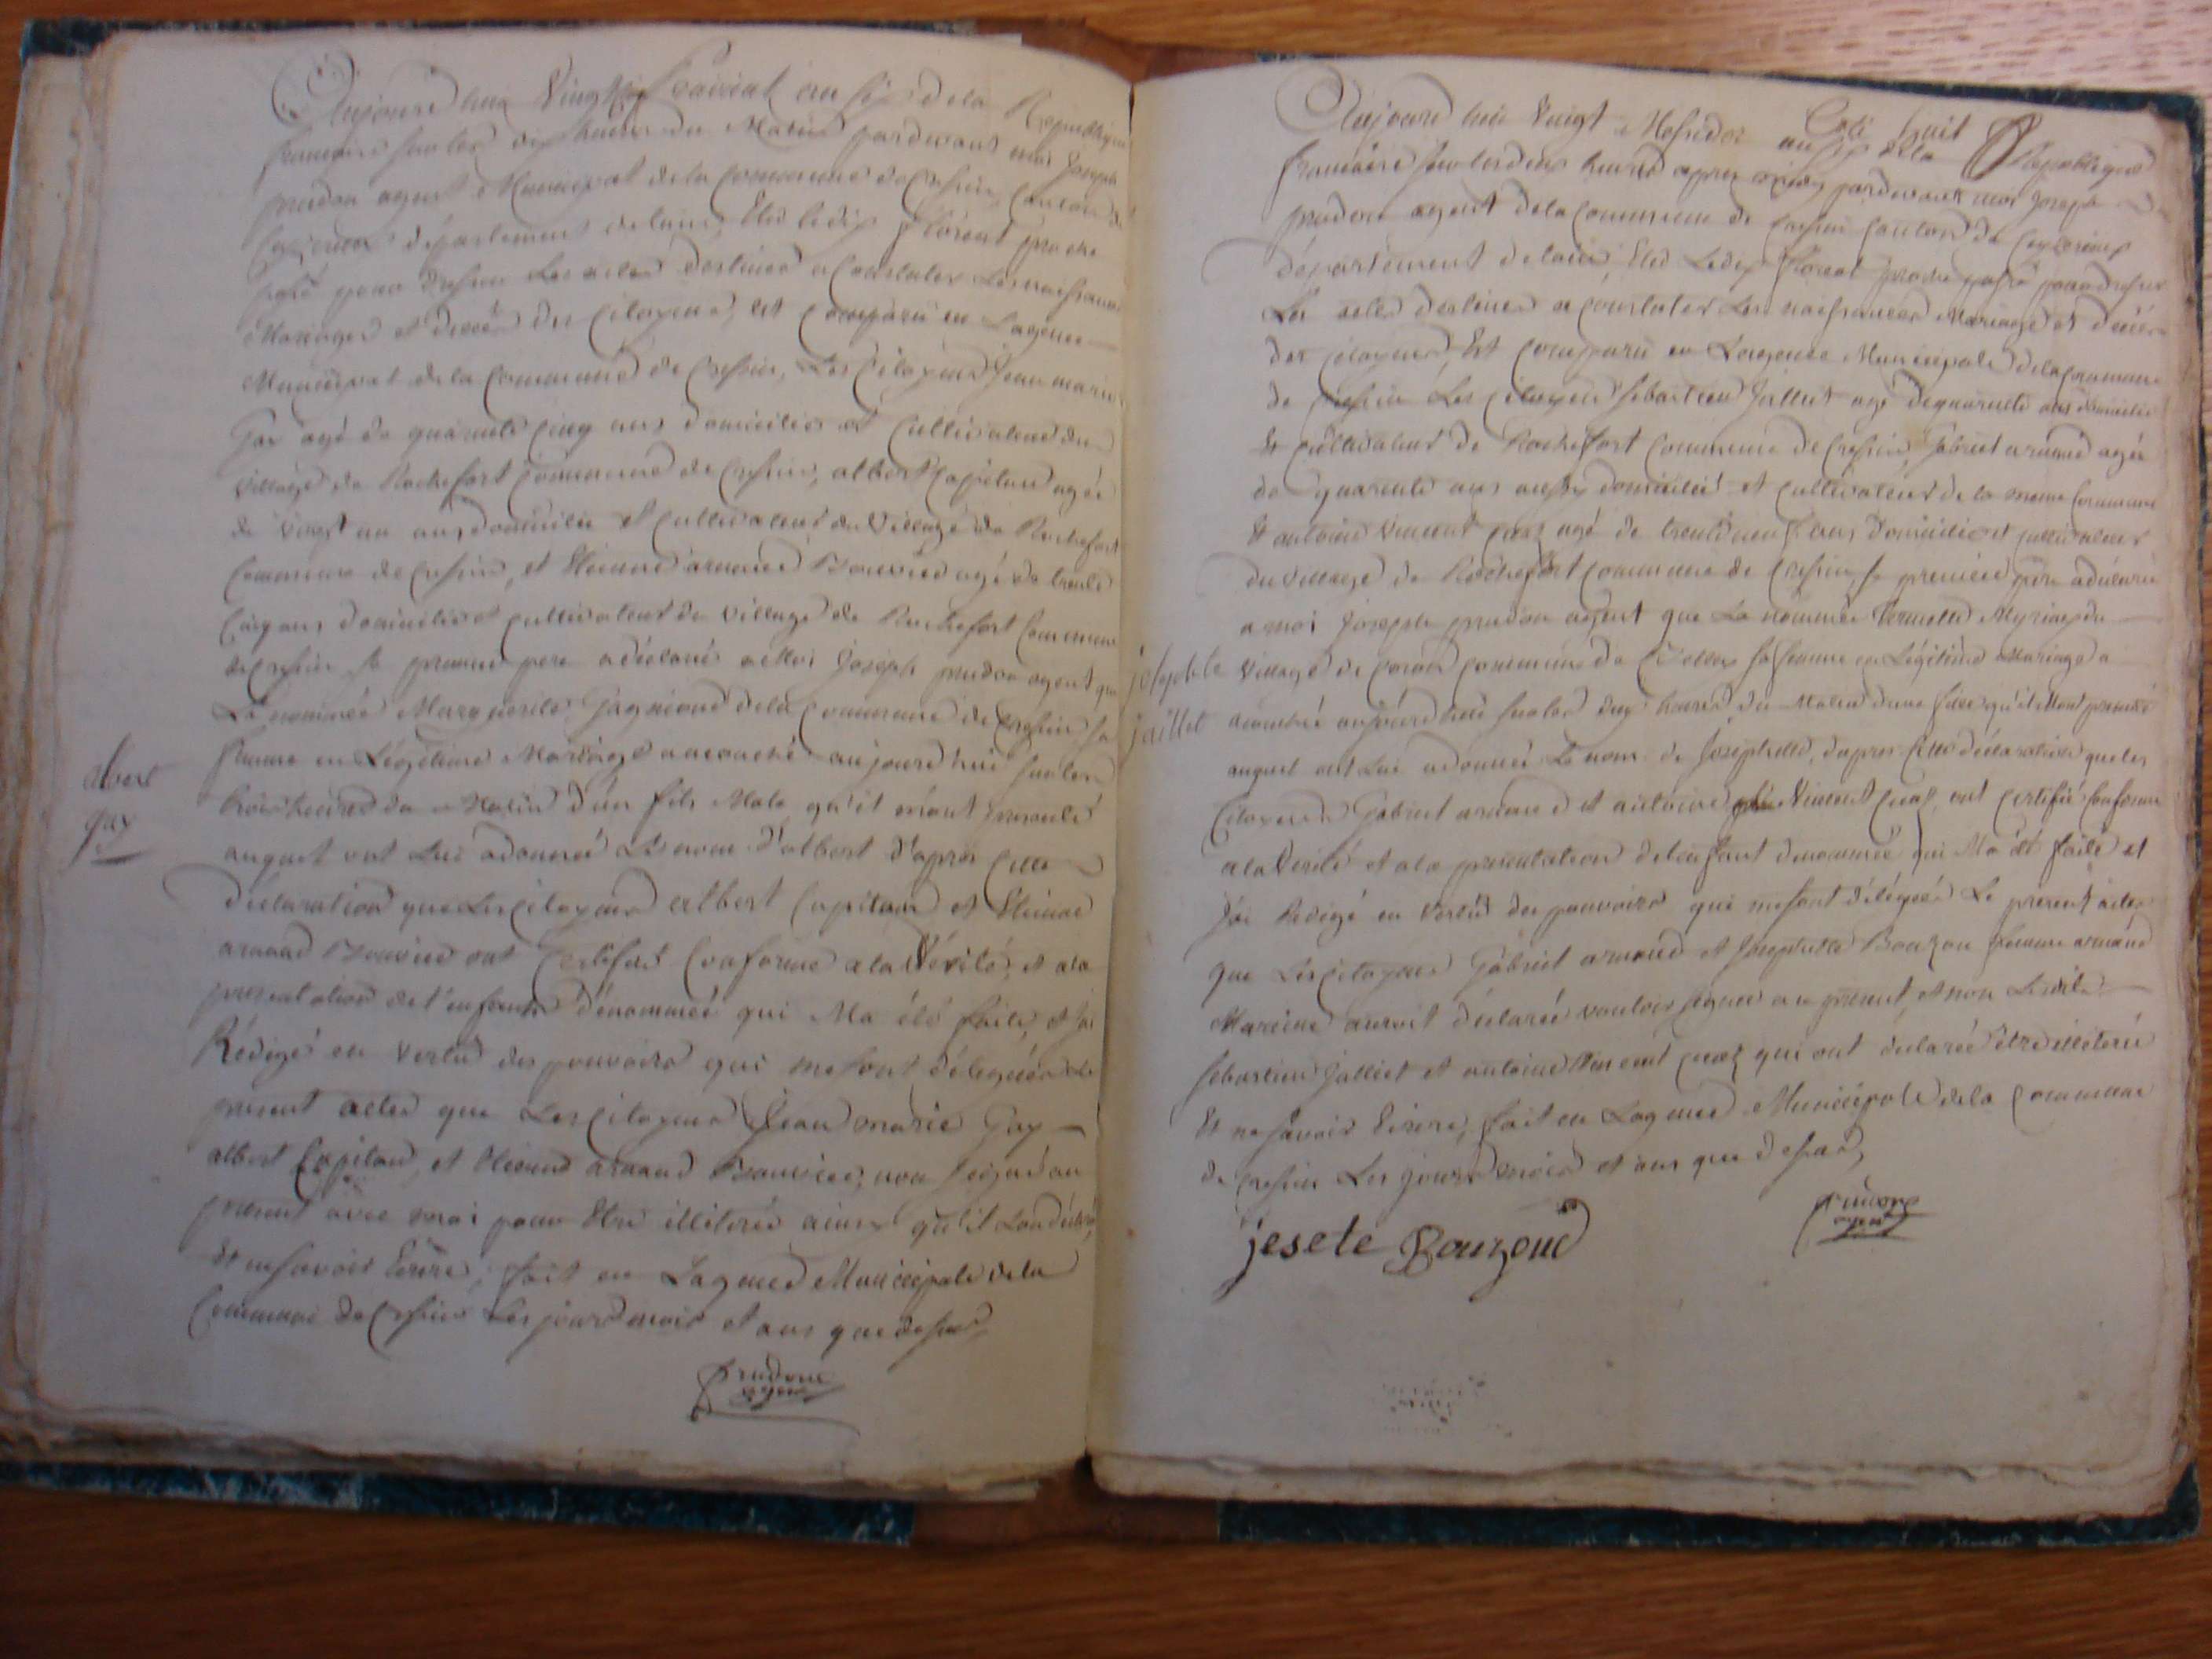 Aujourd huit Vingt prairial an six de la Republique
francaise sur les dix heures du Matin pardevant moi Joseph
prudon agent Municipal de la Commune de Cressin Canton de
Ceyzerieu département de lain, Elus le dix floréal proche
passé pour dresser Les actes destinés a Constater Les naissances
Mariages et deces des Citoyens, est Comparu en Lagence
Municipal de la Commune de Cressin, Les Citoyens Jean marie
Gay agé de quarante Cinq ans domicilié et Cultivateur du
village de Rochefort Commune de Cressin, albert Capitan agée
de vingt un ans domicilié et Cultivateur du Village de Rochefort
Commune de Cressin, et Etienne arnaud Bouvier agé de trente
Cinq ans domicilié et Cultivateur du village de Rochefort Commune
de Cressin le premier pere a déclaré a Moi Joseph prudon agent que
La nommée Marguerite de la Commune de Cressin sa
femme en Légitime Mariage a accouché aujourd huit sur les
trois heures du Matin d'un fils Male qu'il m'ont presenté
auquel ont Lui adonnée Le nom d'albert d'après Cette
déclaration que Les Citoyens albert Capitan et Etienne
arnaud Bouvier ont Certifiés Conforme a la Vérité, et ala
presentation de l'enfant dénommée qui Ma été faite, et jai
Rédigé en Vertu des pouvoirs qui me sont délegués Le
présent actes que Les Citoyens Jean marie Gay
albert Capitan, et Etienne arnaud Bouvier, non signés au
présent avec moi pour Etre illiterée ainsi qu'il Lon déclaré,
Et ne savoir Ecrire, fait en Lagence Municipale de la
Commune de Cressin Les jours mois et ans que dessus
prudon
agent
albert
gay
Coté huit
Aujourd hui Vingt Messidor an six dela Republique
francaise sur les deux heures apres midy pardevant moi Joseph
prudon agent de la Commune de Cressin Canton de Ceyzerieu
département de lain, Elus Le dix floreal proche passé pour dresser
Les actes destinés a constater Les naissances Mariages et deces
des Citoyens, Est Comparu en Lagence Municipale de la Commune
de Cressin Les Citoyens Sebastien Juillet agé de quarante ans domicilié
Et Cultivateur de Rochefort Commune de Cressin, Gabriel arnaud agée
de quarante ans aussy domicilié et Cultivateur de la meme Commune
Et antoine Vincent agé de trente neuf ans domicilié et Cultivateur
du village de Rochefort Commune de Cressin, le premier pere a declaré
a moi Joseph prudon agent que La nommée du
village de Commune de sa femme en Légitime Mariage a
accouchée aujourd huit sur les dix heures du Matin dune fille qu'il Mont presenté
auquel ont Lui adonnée Le nom de Josephette, dapres Cette déclaration que les
Citoyens Gabriel arnaud et antoine Vincent ont Certifié Conforme
a la Verité et ala presentation de lenfant denommée qui Ma été faite et
Jai Redigé en Vertu des pouvoirs qui me sont délégués Le present actes
que Les Citoyens Gabriel arnaud et Josephette Bouzon femme arnaud
Marine auroit déclarée vouloir signer au present, et non Ledits
Sebastien Juillet et antoine Vincent qui ont déclarée être illiterée
Et ne savoir Ecrire, fait en Lagence Municipale de la Commune
de Cressin Les jours mois et ans que dessus,
jesete Bouzond
prudon
agent
josephte
juillet